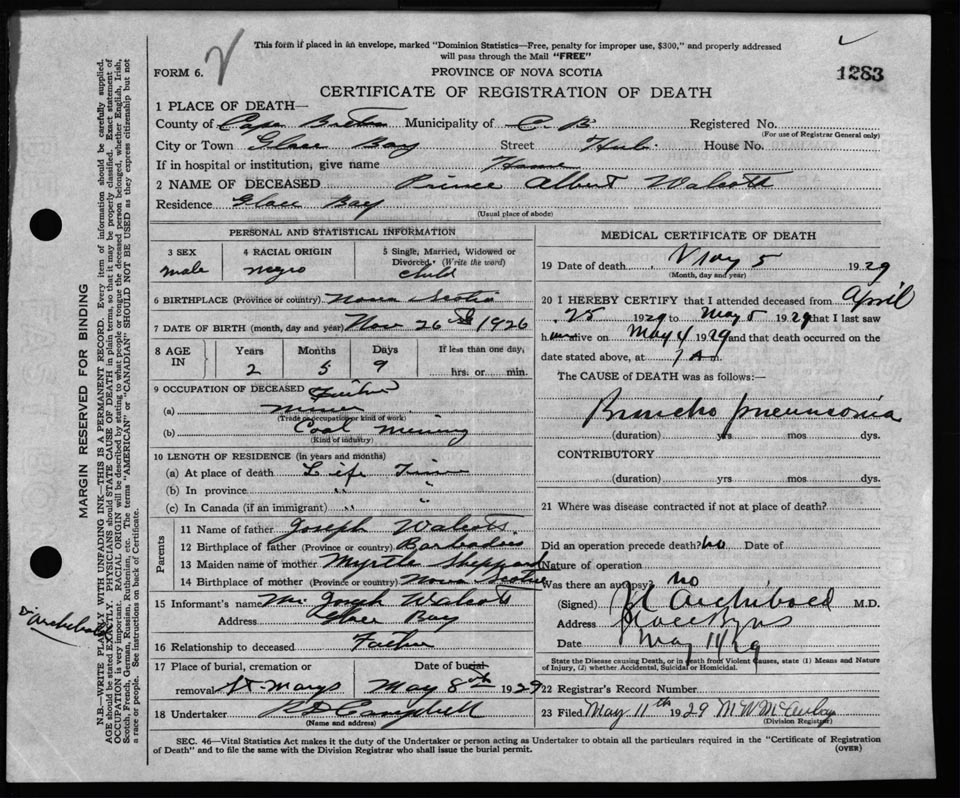 This form if placed in an envelope, marked "Dominion Statistics—Free, penalty for improper use, $300," and properly addressed
will pass through the Mail "FREE"
FORM 6.
PROVINCE OF NOVA SCOTIA
1283
CERTIFICATE OF REGISTRATION OF DEATH
1 PLACE OF DEATH—
County of Cape Breton Municipality of C. B. Registered No.
(For use of Registrar General only)
City or Town Glace Bay Street Hub. House No.
If in hospital or institution, give name Home
2 NAME OF DECEASED Prince Albert Walcott
Residence Glace Bay
(Usual place of abode)
PERSONAL AND STATISTICAL INFORMATION
3 SEX
male
4 RACIAL ORIGIN
negro
5 Single, Married, Widowed or
Divorced. (Write the word)
child
6 BIRTHPLACE (Province or country) Nova Scotia
7 DATE OF BIRTH (month, day and year) Nov 26th 1926
8 AGE IN
Years Months Days If less than one day,
2 5 9 hrs. or min.
9 OCCUPATION OF DECEASED Father
(a) miner
(Trade or occupation or kind of work)
(b) Coal mining
(Kind of industry)
10 LENGTH OF RESIDENCE (in years and months)
(a) At place of death Life Time
(b) In province " "
(c) In Canada (if an immigrant) " "
Parents
11 Name of father Joseph Walcott
12 Birthplace of father (Province or country) Barbadoes
13 Maiden name of mother Myrtle Sheppard
14 Birthplace of mother (Province or country) Nova Scotia
15 Informant's name Mr. Joseph Walcott
Address Glace Bay
16 Relationship to deceased Father
17 Place of burial, cremation or Date of burial
removal St. Marys May 8th 1929
18 Undertaker Campbell
(Name and address)
MEDICAL CERTIFICATE OF DEATH
19 Date of death May 5 1929
(Month, day and year)
20 I HEREBY CERTIFY that I attended deceased from April
25 1929 to May 5 1929 that I last saw
h alive on May 4 1929 and that death occurred on the
date stated above, at 1 A
The CAUSE OF DEATH was as follows:—
Broncho pneumonia
(duration) yrs mos dys.
CONTRIBUTORY
(duration) yrs mos dys.
21 Where was disease contracted if not at place of death?
Did an operation precede death? no Date of
Nature of operation
Was there an autopsy? no
(Signed) Archibald M.D.
Address Glace Bay N.S.
Date May 11/29
State the Disease causing Death, or in death from Violent Causes, state (1) Means and Nature
of Injury, (2) whether Accidental, Suicidal or Homicidal.
22 Registrar's Record Number
23 Filed May 11th 1929 M W McAulay
(Division Registrar)
SEC. 46—Vital Statistics Act makes it the duty of the Undertaker or person acting as Undertaker to obtain all the particulars required in the "Certificate of Registration
of Death" and to file the same with the Division Registrar who shall issue the burial permit.
(OVER)
MARGIN RESERVED FOR BINDING
N.B.—WRITE PLAINLY WITH UNFADING INK—THIS IS A PERMANENT RECORD. Every item of information should be carefully supplied.
AGE should be stated EXACTLY. PHYSICIANS should STATE CAUSE OF DEATH in plain terms, so that it may be properly classified. Exact statement of
OCCUPATION is very important. RACIAL ORIGIN will be described by stating to what people or tongue the deceased person belonged, whether English, Irish,
Scotch, French, German, Russian, Ruthenian, etc. The terms "AMERICAN" or "CANADIAN" SHOULD NOT BE USED as they express citizenship but not
a race or people. See instructions on back of Certificate.
Dr Archibald